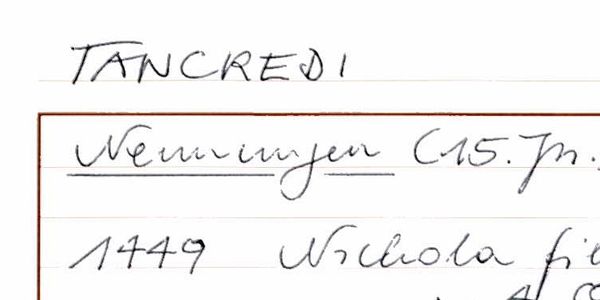 TANCREDI
Nennungen (15. Jh.
1449 Nichola fi